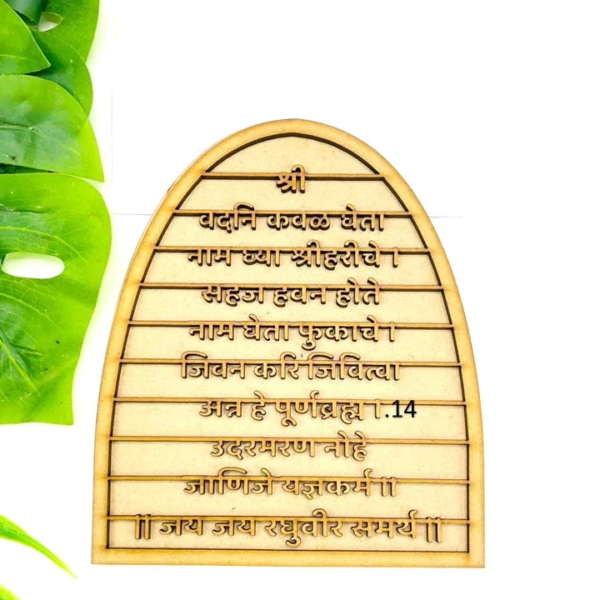 श्री
वदनि कवळ घेता
नाम घ्या श्रीहरीचे ।
सहज हवन होते
नाम घेता फुकाचे ।
जिवन करि जिवित्वा
अन्न हे पूर्णब्रह्म ।.14
उदरमरण नोहे
जाणिजे यज्ञकर्म ॥
॥ जय जय रघुवीर समर्थ ॥